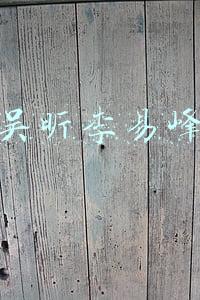 吴昕李易峰